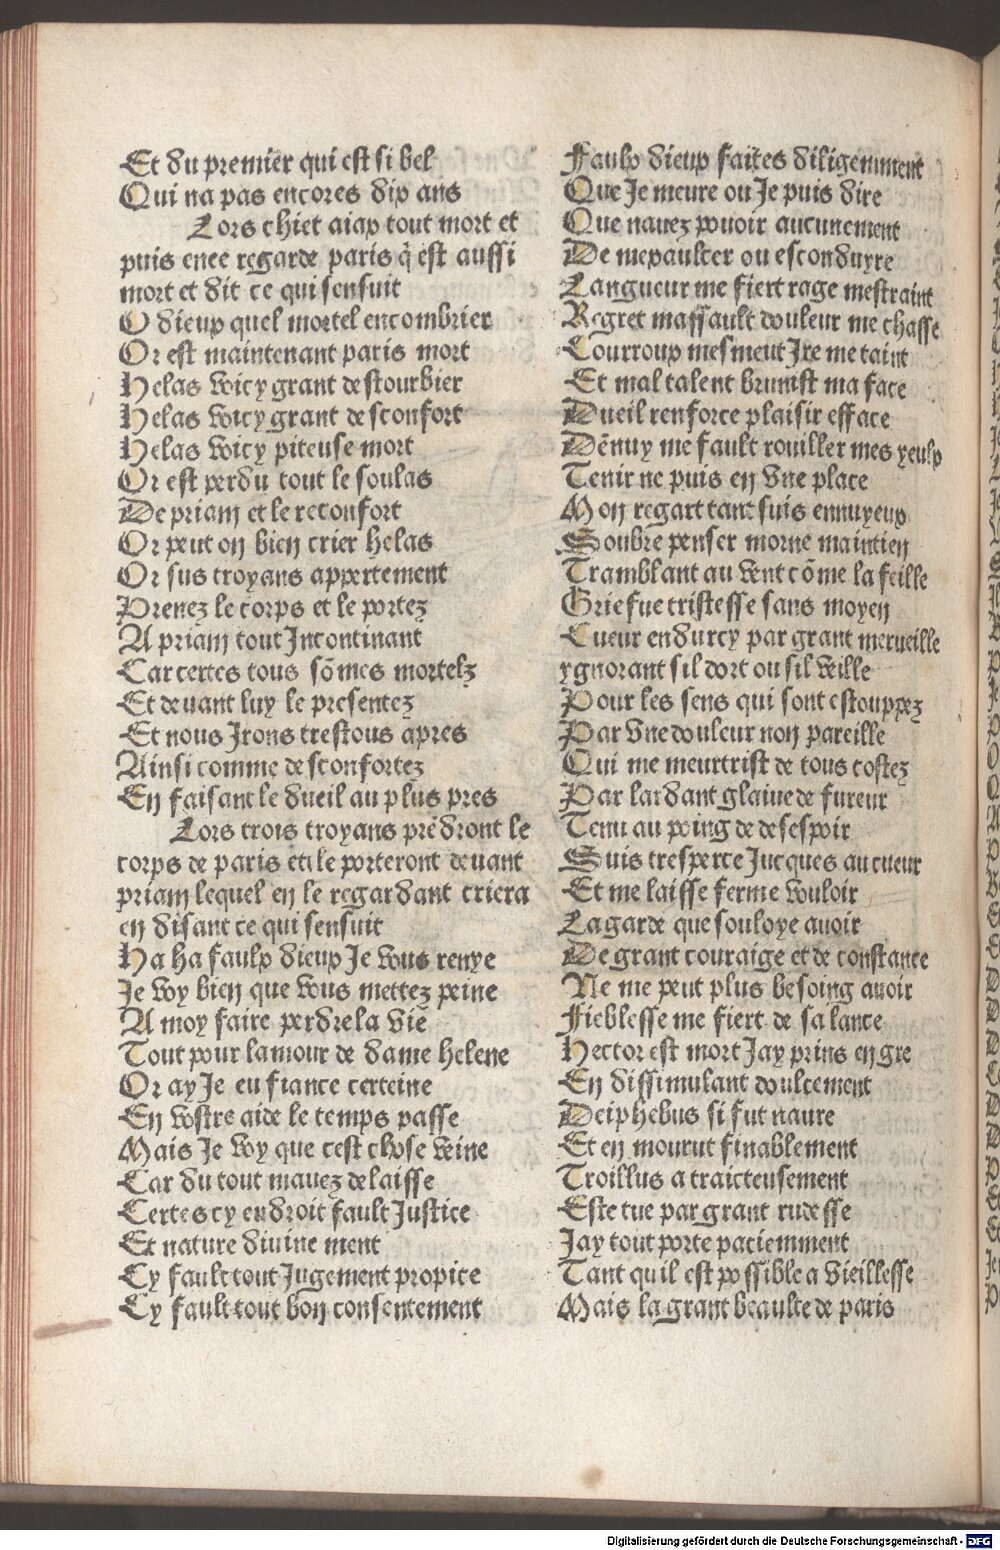 Et du premier qui est si bel
Qui na pas encores dix ans
Lors chiet aiax tout mort et
puis enee regarde paris q̄ est aussi
mort et dit ce qui sensuit
O dieux quel mortel encombrier
Or est maintenant paris mort
Helas voicy grant destourbier
Helas voicy grant desconfort
Helas voicy piteuse mort
Or est perdu tout le soulas
De priam et le reconfort
Or peut on bien crier helas
Or sus troyans appertement
Prenez le corps et le portez
A priam tout Incontinant
Car certes tous sōmes mortelz
Et deuant luy le presentez
Et nous Irons trestous apres
Ainsi comme desconfortez
En faisant le dueil au plus pres
Lors trois troyans prēdront le
corps de paris et le porteront deuant
priam lequel en le regardant criera
en disant ce qui sensuit
Ha ha faulx dieux Je vous renye
Je voy bien que vous mettez peine
A moy faire perdre la vie
Tout pour lamour de dame helene
Or ay Je eu fiance certeine
En vostre aide le temps passe
Mais Je voy que cest chose veine
Car du tout mauez delaisse
Certes cy endroit fault Justice
Et nature diuine ment
Cy fault tout Jugement propice
Cy fault tout bon consentement
Faulx dieux faites diligemment
Que Je meure ou Je puis dire
Que nauez pouoir aucunement
De mexaulcer ou escondupre
Langueur me fiert rage mestraint
Regret massault douleur me chasse
Courroux mesmeut Ire me taint
Et mal talent brunist ma face
Dueil renforce plaisir efface
Dēnuy me fault rouiller mes yeulx
Tenir ne puis en vne place
Mon regart tant suis ennuyeux
Soubre penser morne maintien
Tramblant au vent cōme la feille
Griefue tristesse sans moyen
Cueur endurcy par grant merueille
ygnorant sil dort ou sil veille
Pour les sens qui sont estouppez
Par vne douleur non pareille
Qui me meurtrist de tous costez
Par lardant glaiue de fureur
Tenu au poing de desespoir
Suis tresperce Jucques au cueur
Et me laisse ferme vouloir
La garde que souloye auoir
De grant couraige et de constance
Ne me peut plus besoing auoir
Fieblesse me fiert de sa lance
Hector est mort Jay prins en gre
En dissimulant doulcement
Deiphebus si fut naure
Et en mourut finablement
Troillus a traicteusement
Este tue par grant rudesse
Jay tout porte paciemment
Tant quil est possible a vieillesse
Mais la grant beaulte de paris
Digitalisierung gefördert durch die Deutsche Forschungsgemeinschaft - DFG